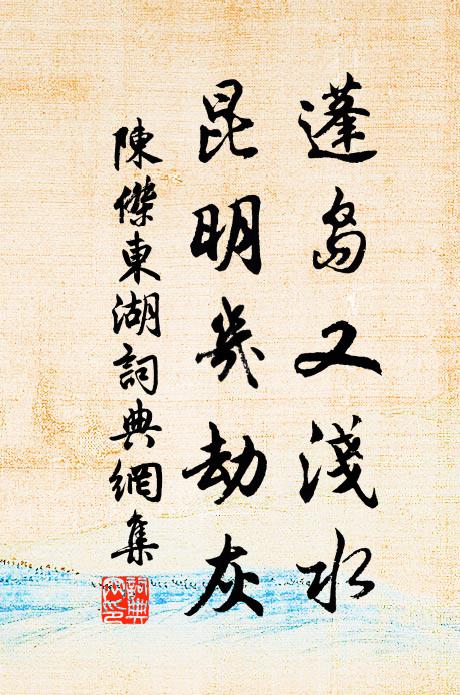 蓬島又淺水
昆明幾劫灰
陳傑東湖詞典網集